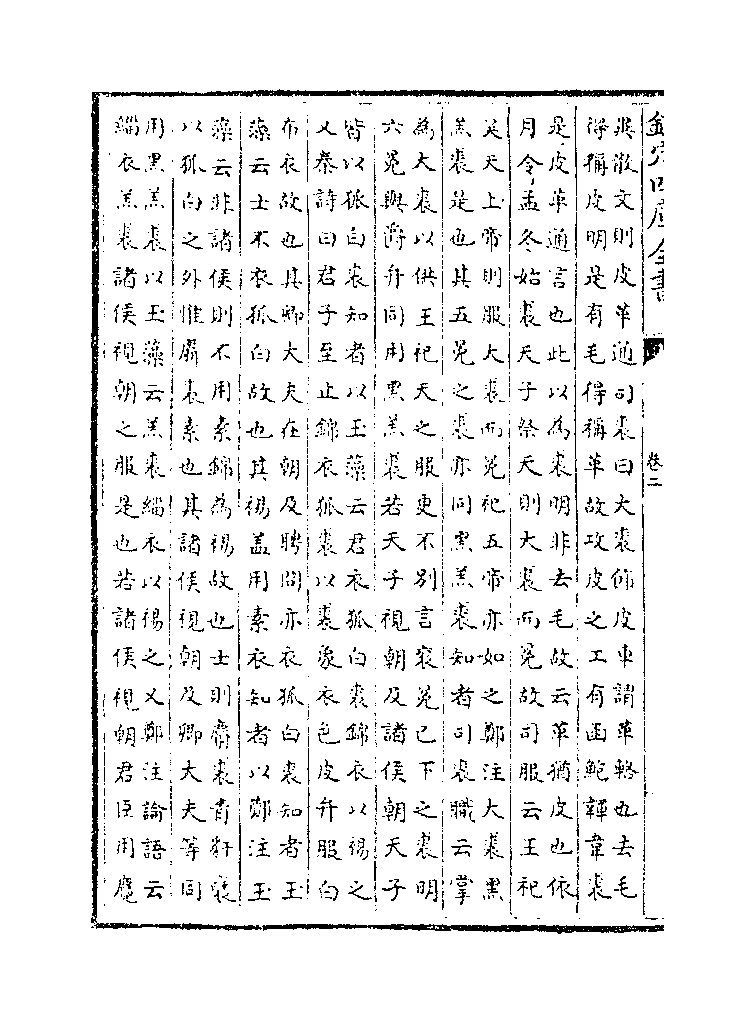 欽定四庫全書
卷二
異散文則皮革通司裘曰大裘飾皮車謂革輅也去毛
得稱皮明是有毛得稱革故攻皮之工有函鮑韗韋裘
是皮革通言也此以為裘明非去毛故云革猶皮也依
月令孟冬始裘天子祭天則大裘而冕故司服云王祀
昊天上帝則服大裘而冕祀五帝亦如之鄭注大裘黑
羔裘是也其五冕之裘亦同黑羔裘知者司裘職云掌
為大裘以供王祀天之服更不別言衮冕已下之裘明
六冕與爵弁同用黑羔裘若天子視朝及諸侯朝天子
皆以狐白裘知者以玉藻云君衣狐白裘錦衣以裼之
又秦詩曰君子至止錦衣狐裘以裘象衣色皮弁服白
布衣故也其卿大夫在朝及聘問亦衣狐白裘知者玉
藻云士不衣狐白故也其裼盖用素衣知者以鄭注玉
藻云非諸侯則不用素錦為裼故也士則麛裘青豻褎
以狐白之外惟麛裘素也其諸侯視朝及卿大夫等同
用黑羔裘以玉藻云羔裘緇衣以裼之又鄭注論語云
緇衣羔裘諸侯視朝之服是也若諸侯視朝君臣用麛